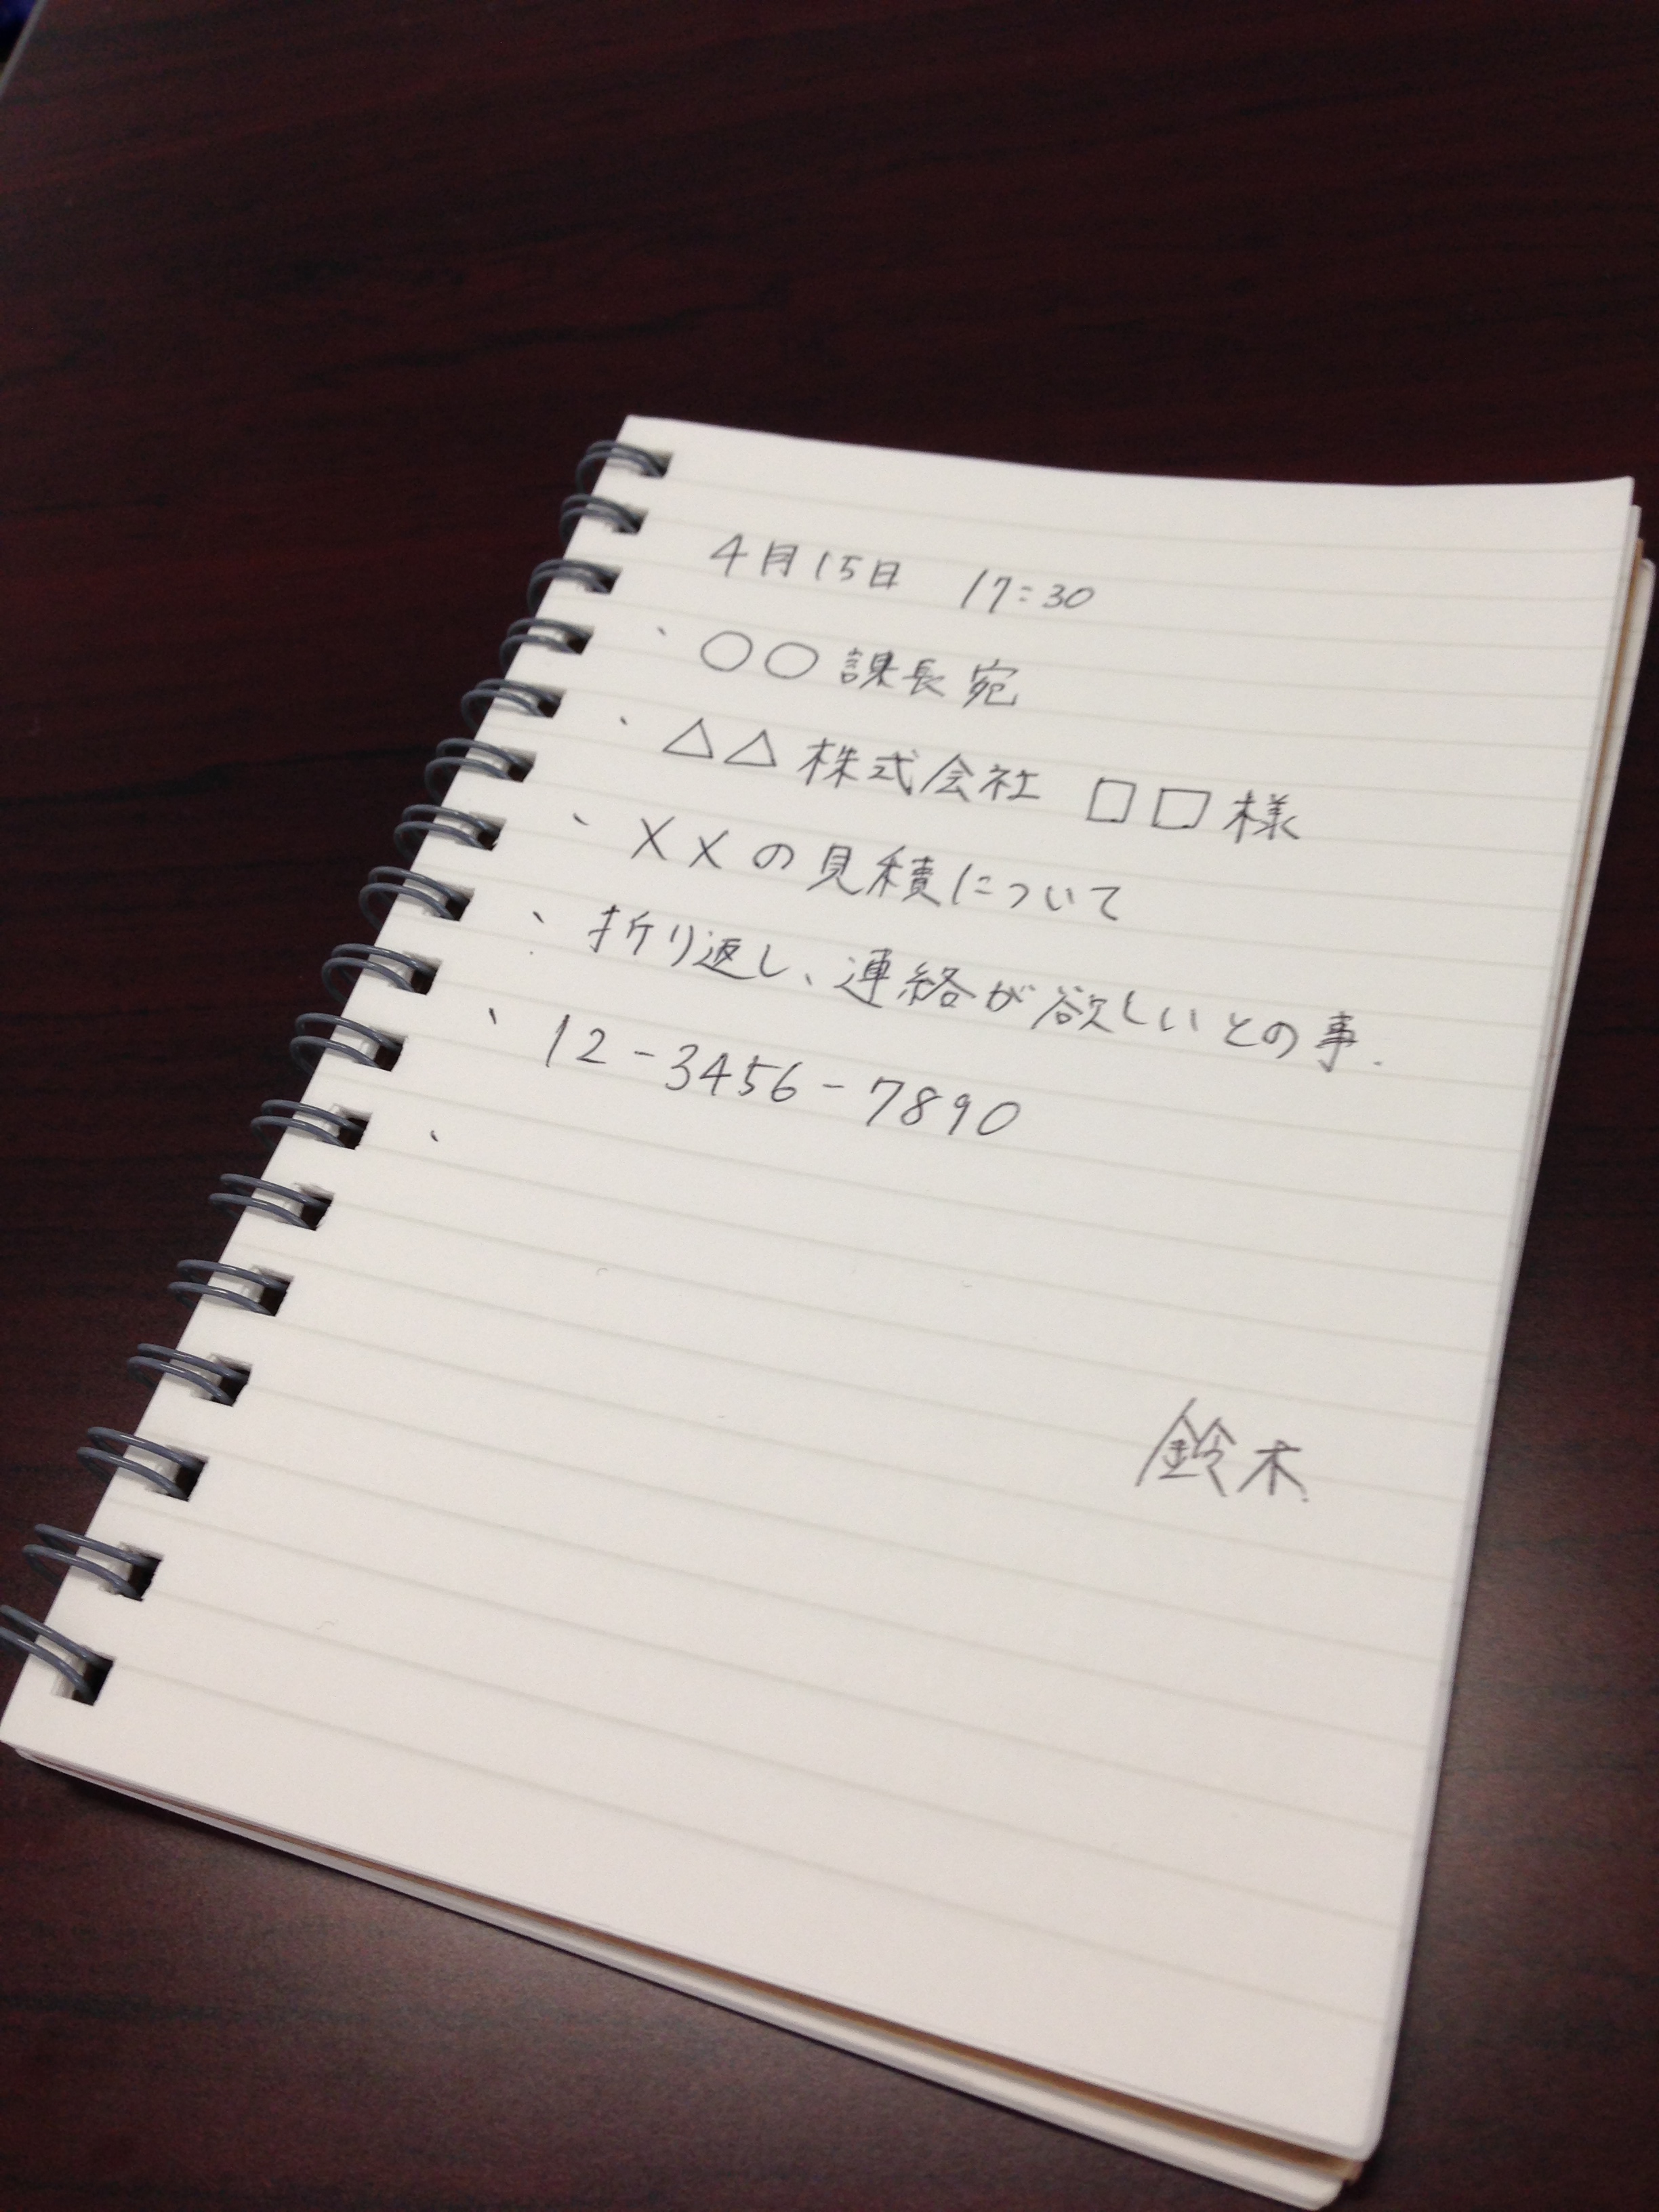 4月15日 17:30
、○○課長宛
、△△株式会社 □□様
、××の見積について
、折り返し、連絡が欲しいとの事.
、12-3456-7890
、
鈴木